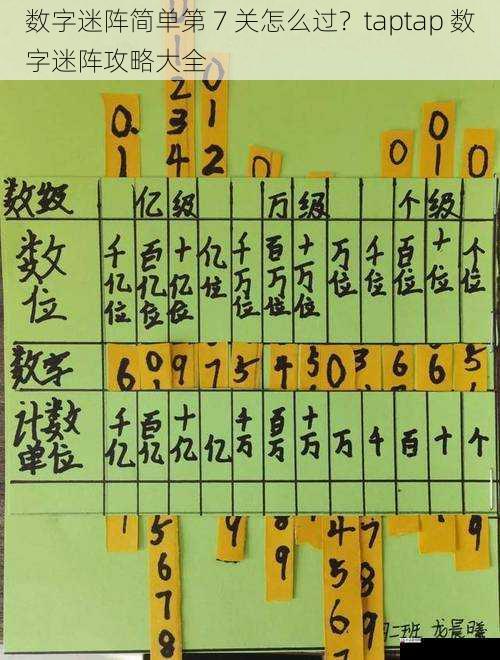 数字迷阵简单第 7 关怎么过？taptap 数
字迷阵攻略大全
1 0
0. 2 1 0
1 3 2 0 0 1 0
4
数级 亿级 万级 个级
数位 千亿位 百亿位 十亿位 亿位 千万位 百万位 十万位 万位 千位 百位 十位 个位
数字 6 0 9 7 5 4 5 0 3 6 6 5
计数单位 千亿 百亿 十亿 亿 千万 百万 十万 万 千 百 十 个
5 9 9 4 7 9
6 5 8
7 6 9
8 7
二班 龙晨曦